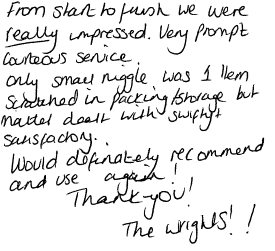 From start to finish we were
really impressed. Very prompt
courteous service.
only small niggle was 1 item
scratched in packing/storage but
matter dealt with swiftly &
satisfactory.
Would definately recommend
and use again!
Thank-you!
The Wrights!!